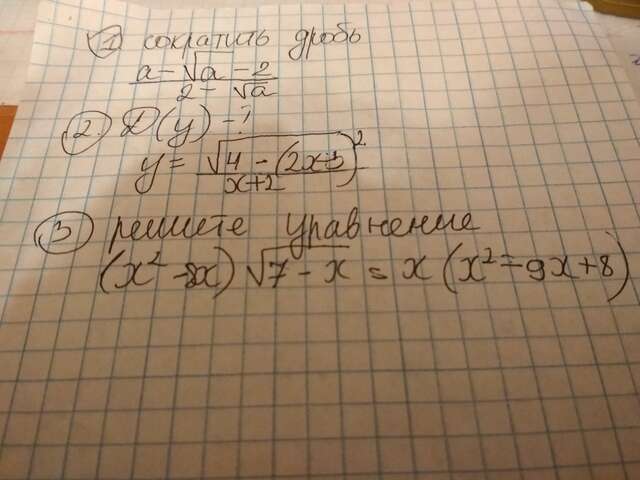 1 сократить дробь
a - √a - 2
2 - √a
2. D(y) - ?
y = √4 - (2x+3)²
x+2
3 решите уравнение
(x² - 8x) √7 - x = x (x² - 9x + 8)